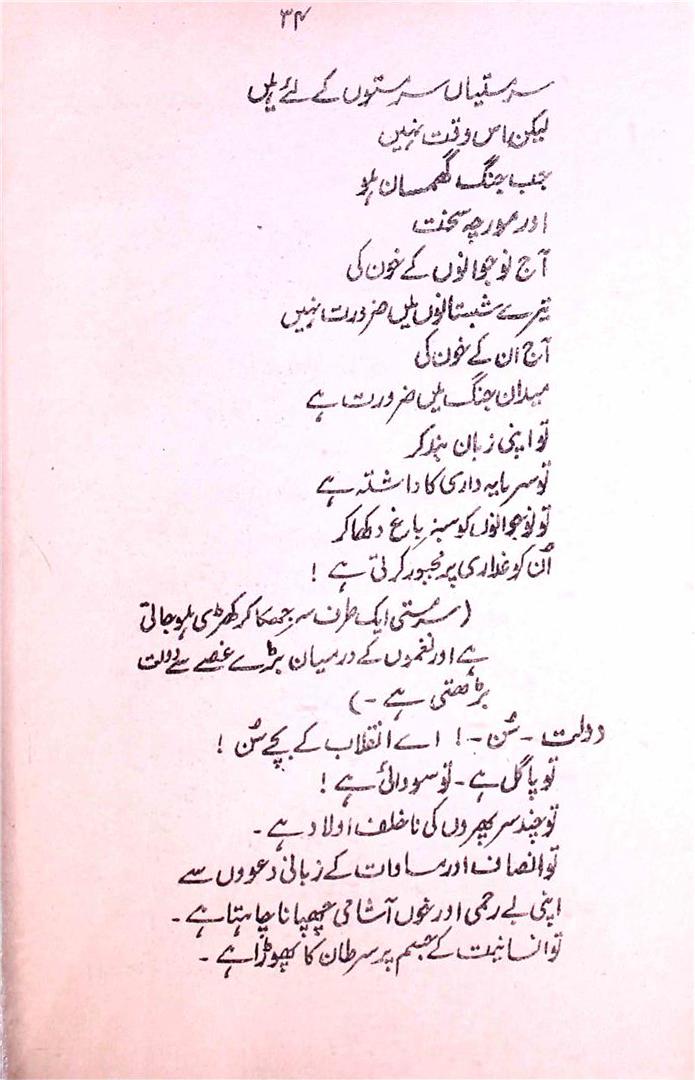 ۳۴
سرمستیاں سرمستوں کے لئے ہیں
لیکن اس وقت نہیں
جب جنگ گھمسان ہو
اور مورچہ سخت
آج نوجوانوں کے خون کی
تیرے شبستانوں میں ضرورت نہیں
آج ان کے خون کی
میدان جنگ میں ضرورت ہے
تو اپنی زبان بند کر
تو سرمایہ داری کا داشتہ ہے
تو نوجوانوں کو سبز باغ دکھا کر
اُن کو غداری پر مجبور کرتی ہے !
(سرمستی ایک طرف سر جھکا کر کھڑی ہو جاتی
ہے اور نغموں کے درمیان بڑے غصے سے دولت
بڑھتی ہے -)
دولت - سُن - ! اے انقلاب کے بچے سُن !
تو پاگل ہے - تو سودائی ہے !
تو چند سر پھروں کی ناخلف اولاد ہے -
تو انصاف اور مساوات کے زبانی دعووں سے
اپنی بے رحمی اور خوں آشامی چھپانا چاہتا ہے -
تو انسانیت کے جسم پر سرطان کا پھوڑا ہے -